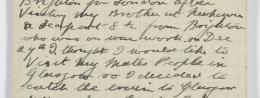 Brighton for London after
Visiting My Brother at Newhaven
a Sergeant R E from Brighton
who was on war work, on Dec
27th I thought I would like to
Visit My Mates People in
Glasgow so I decided to
catch the train to Glasgow